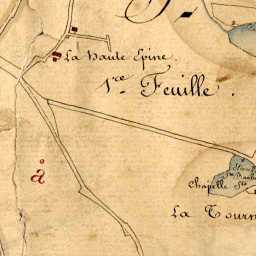 La Haute Epine.
1re Feuille.
å
Chapelle Ste
La Tourn